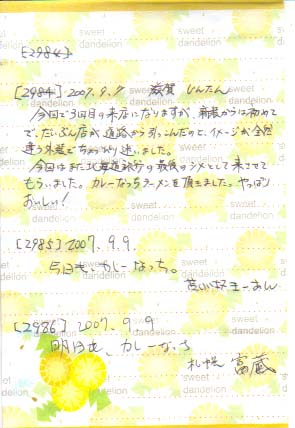 [2984]
[2984] 2007.9.9 滋賀 じんたん
今回で3回目の来店になりますが、新装からは初めて
で、だいぶん店が道路から引っこんだのと、イメージが全然
違う外装でちょっぴり迷いました。
今回はまた北海道旅行の最後のシメとして来させて
もらいました。カレーなっちラーメンを頂きました。やっぱり
おいしい!
[2985] 2007.9.9.
今日も、カレーなっち。
[2986] 2007.9.9
明日も、カレーなっち
札幌 富蔵
sweet
dandelion